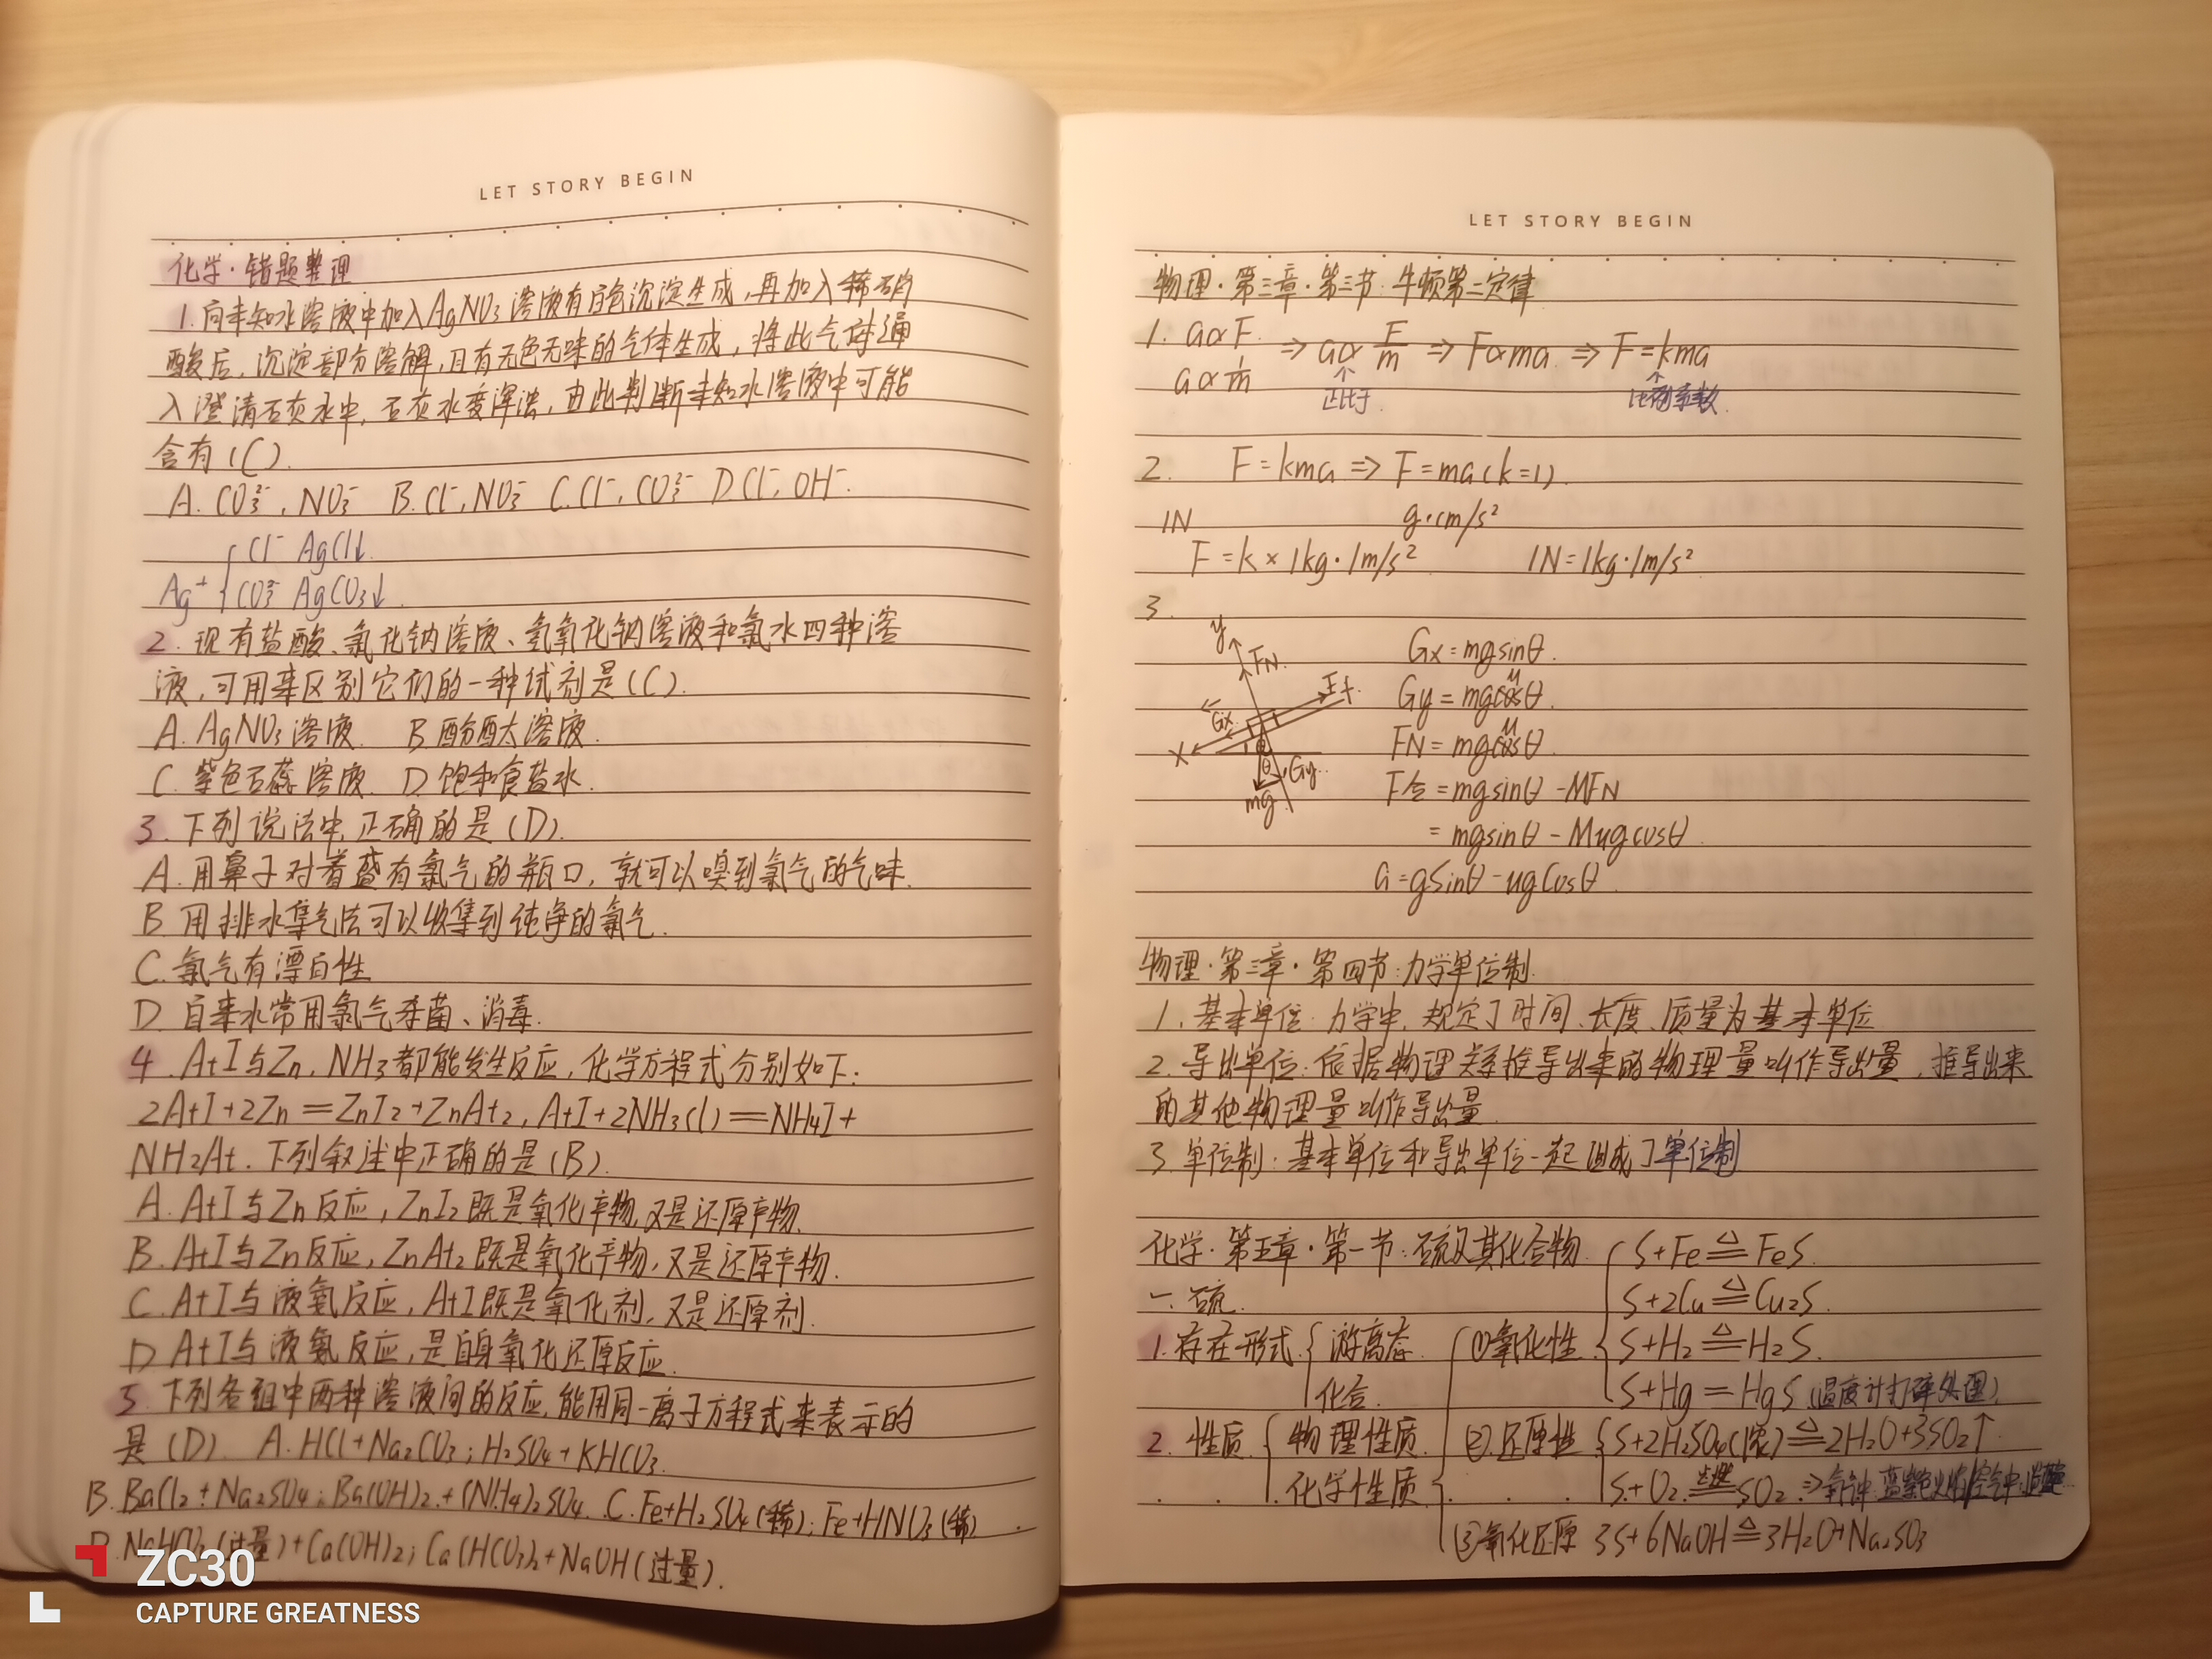 LET STORY BEGIN
化学·错题整理
1.向未知水溶液中加入AgNO3溶液有白色沉淀生成,再加入稀硝
酸后,沉淀部分溶解,且有无色无味的气体生成,将此气体通
入澄清石灰水中,石灰水变浑浊,由此判断未知水溶液中可能
含有(C).
A.CO3²⁻,NO3⁻ B.Cl⁻,NO3⁻ C.Cl⁻,CO3²⁻ D.Cl⁻,OH⁻.
Cl⁻ AgCl↓.
Ag⁺ CO3²⁻ AgCO3↓.
2.现有盐酸、氯化钠溶液、氢氧化钠溶液和氯水四种溶
液,可用来区别它们的一种试剂是(C).
A.AgNO3溶液. B.酚酞溶液.
C.紫色石蕊溶液. D.饱和食盐水.
3.下列说法中,正确的是(D).
A.用鼻子对着盛有氯气的瓶口,就可以嗅到氯气的气味.
B.用排水集气法可以收集到纯净的氯气.
C.氯气有漂白性
D.自来水常用氯气杀菌、消毒.
4.AtI与Zn,NH3都能发生反应,化学方程式分别如下:
2AtI+2Zn=ZnI2+ZnAt2,AtI+2NH3(l)=NH4I+
NH2At.下列叙述中正确的是(B).
A.AtI与Zn反应,ZnI2既是氧化产物,又是还原产物.
B.AtI与Zn反应,ZnAt2既是氧化产物,又是还原产物.
C.AtI与液氨反应,AtI既是氧化剂,又是还原剂.
D.AtI与液氨反应,是自身氧化还原反应.
5.下列各组中两种溶液间的反应,能用同一离子方程式来表示的
是(D). A.HCl+Na2CO3;H2SO4+KHCO3.
B.BaCl2+Na2SO4;Ba(OH)2+(NH4)2SO4. C.Fe+H2SO4(稀);Fe+HNO3(稀)
D.NaHCO3(过量)+Ca(OH)2;Ca(HCO3)2+NaOH(过量).
ZC30
CAPTURE GREATNESS
LET STORY BEGIN
物理·第三章·第三节:牛顿第二定律
1. a∝F
a∝1/m ⇒ a∝F/m ⇒ F∝ma ⇒ F=kma
↑ ↑
正比于. 比例系数.
2. F=kma⇒F=ma(k=1).
1N g·cm/s²
F=k×1kg·1m/s² 1N=1kg·1m/s²
3.
y
FN.
Gx=mgsinθ.
Gy=mgcosθ.
Gx
FN=mgcosθ.
X
θ
Gy.
mg
F合=mgsinθ-MFN
=mgsinθ-Mmgcosθ.
a=gsinθ-ugcosθ
物理·第三章·第四节:力学单位制.
1.基本单位:力学中,规定了时间、长度、质量为基本单位
2.导出单位:依据物理关系推导出来的物理量叫作导出量,推导出来
的其他物理量叫作导出量.
3.单位制:基本单位和导出单位一起组成了单位制
化学·第五章·第一节:硫及其化合物.
S+Fe△=FeS.
一.硫.
S+2Cu△=Cu2S.
1.存在形式 游离态.
化合.
①氧化性
S+H2△=H2S.
S+Hg=HgS(温度计打碎处理).
2.性质. 物理性质.
化学性质
②还原性 S+2H2SO4(浓)△=2H2O+3SO2↑
S+O2点燃=SO2
③氧化还原 3S+6NaOH△=3H2O+Na2SO3